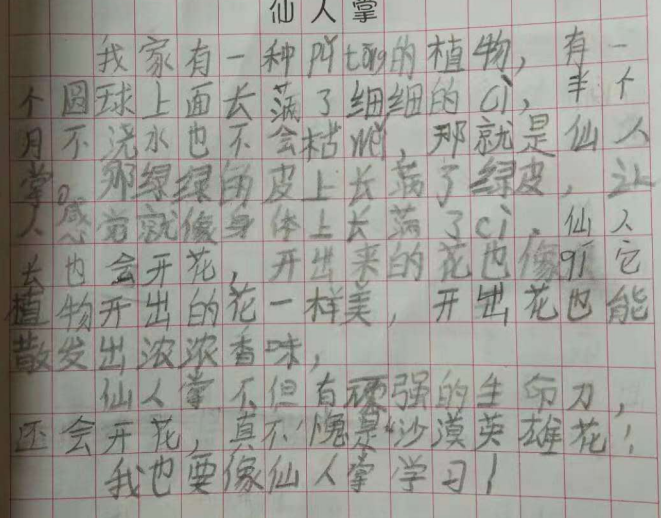 仙人掌
我家有一种pǔtōng的植物，有一
个圆球上面长满了细细的cì，半个
月不浇水也不会枯，那就是仙人
掌。那绿绿的皮上长满了绿皮，让
人感觉就像身体上长满了cì，仙人
也会开花，开出来的花也像qí它
植物开出的花一样美，开出花也能
散发出浓浓香味，
仙人掌不但有顽强的生命力，
还会开花，真不愧是“沙漠英雄花！
我也要像仙人掌学习！